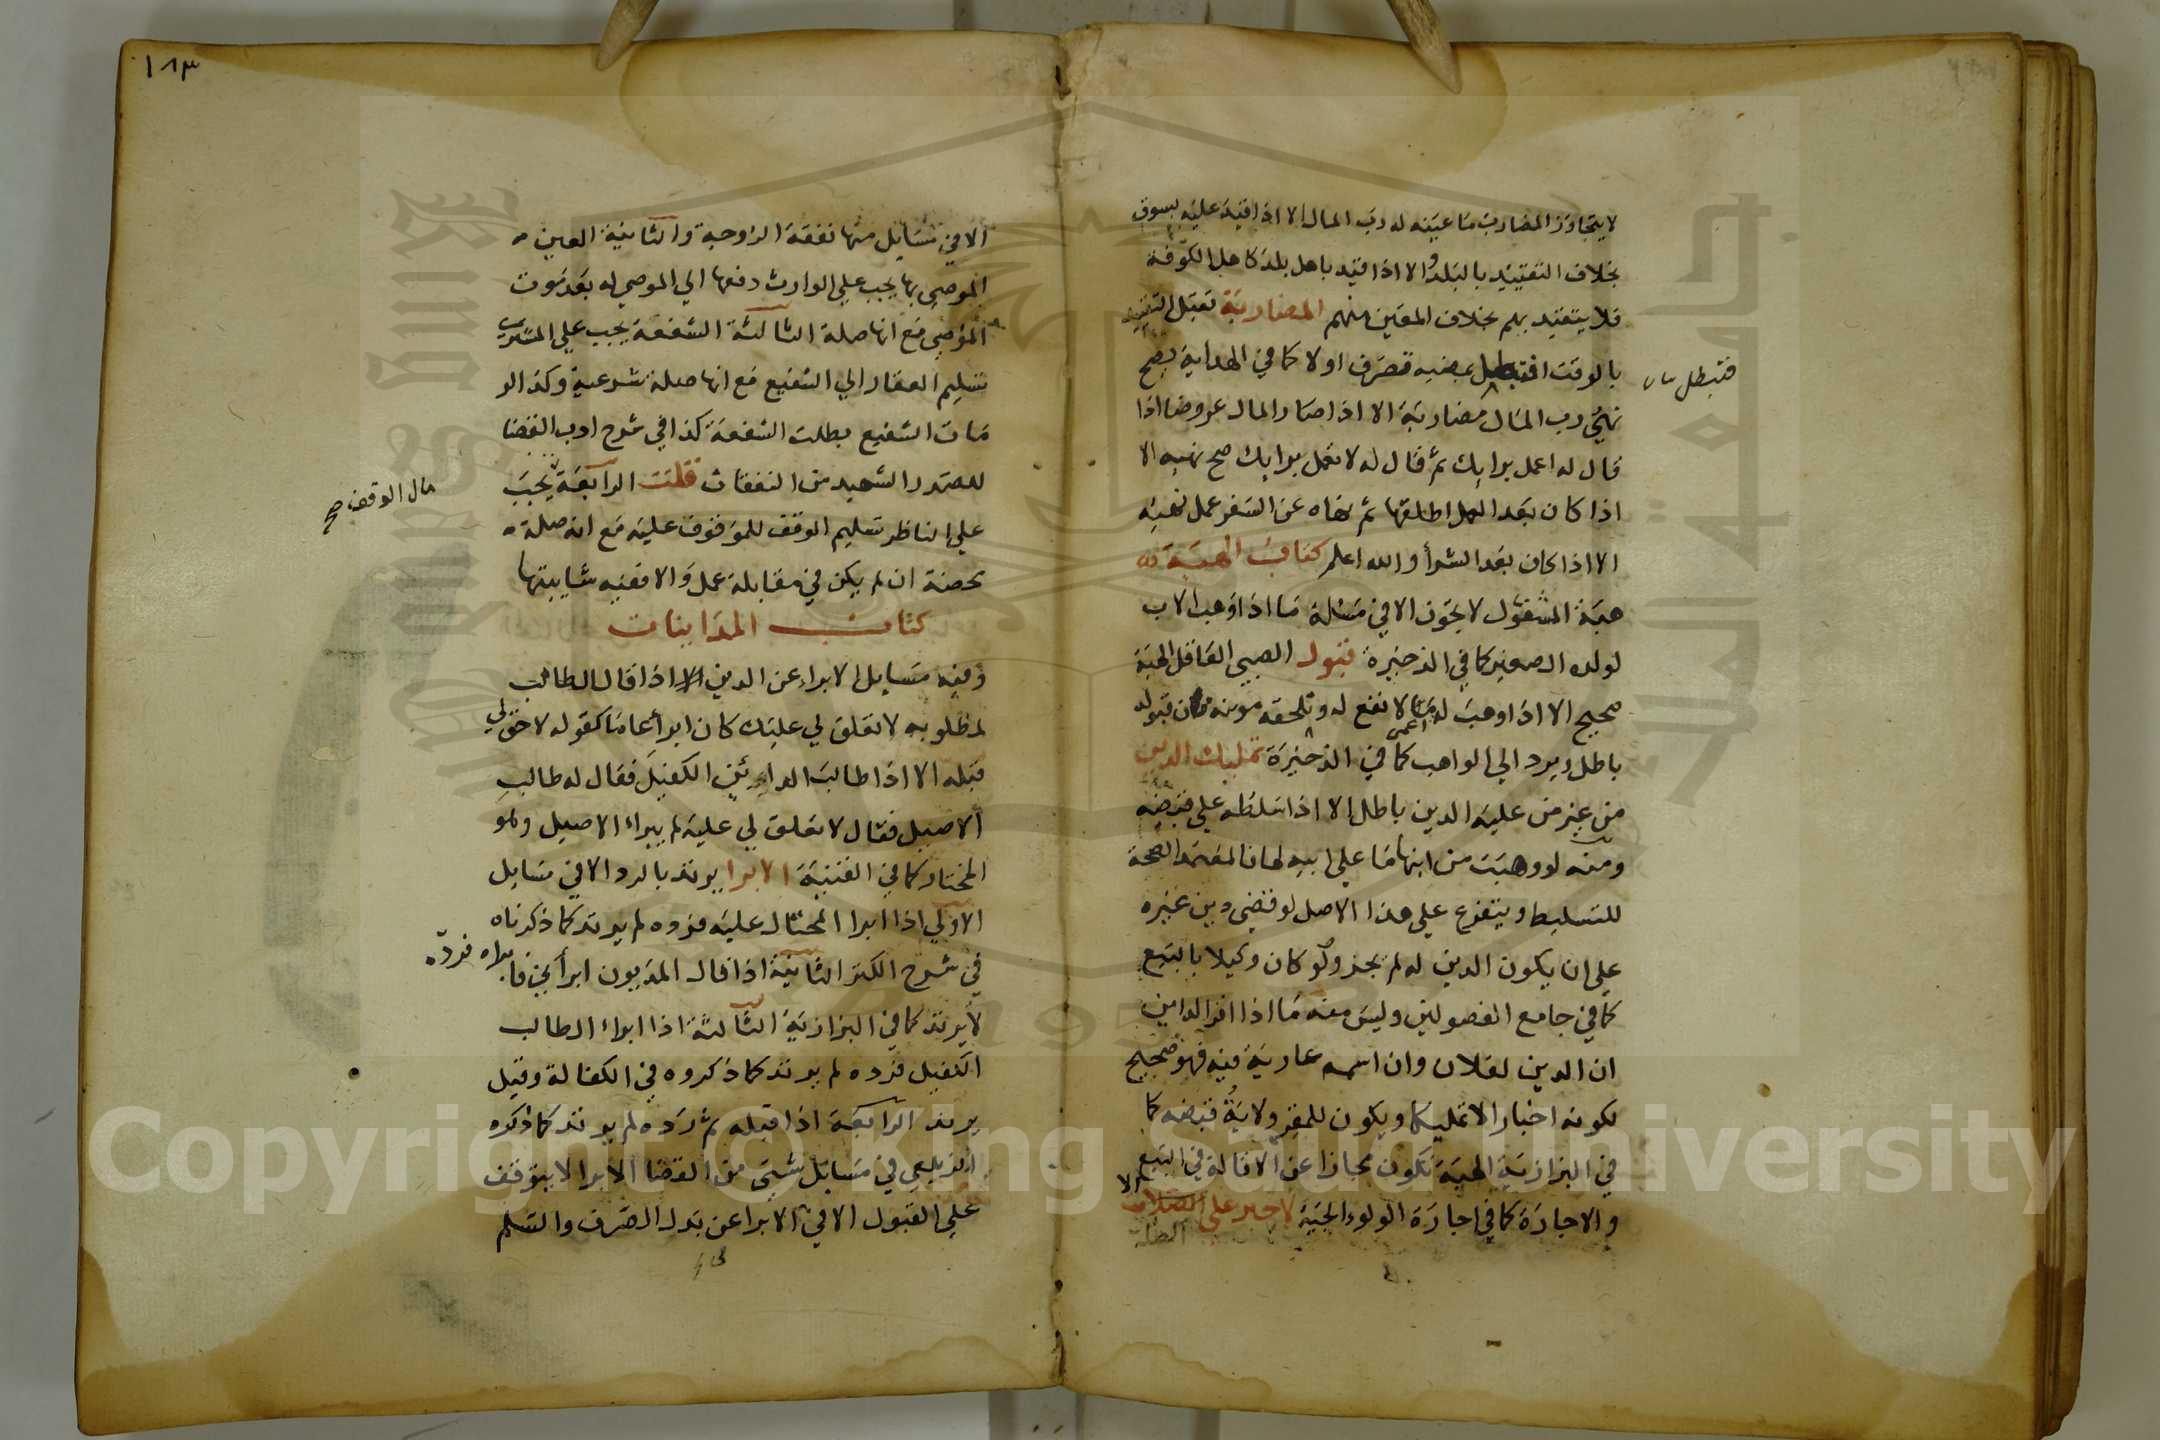 لا يتجاوز المضارب ما عينه له رب المال الا اذا قيد عليه بسوق
بخلاف التقييد بالبلد والا اذا قيد باهل بلد كاهل الكوفة
فلا يتقيد بهم بخلاف المعين منهم المضاربة تقبل التقييد
بالوقت بمضيه تصرف اولا كما في الهداية يصح
فتبطل
نهي رب المال مضاربة الا اذا صار المال عروضا اذا
قال له اعمل برايك ثم قال له لا تعمل برايك صح نهيه الا
اذا كان بعد العمل اطلقها ثم نهاه عن السفر عمل نهيه
الا اذا كان بعد الشرأ والله اعلم كتاب الهبة
هبة المشغول لا يجوز الا في مسئلة ما اذا وهب الاب
لولده الصغير كما في الذخيرة قبول الصبي العاقل الهبة
صحيح الا اذا وهب له اعمى لا نفع له وتلحقه مونته فان قبوله
باطل ويرد الي الواهب كما في الذخيرة تمليك الدين
من غير من عليه الدين باطل الا اذا سلطه علي قبضه
ومنه لو وهبت من ابنها ما علي ابيه لها فالمعتمد الصحة
للتسليط ويتفرع علي هذا الاصل لو قضي دين غيره
علي ان يكون الدين له لم يجز ولو كان وكيلا بالبيع
كما في جامع الفصولين وليس منه ما اذا اقر الداين
ان الدين لفلان وان اسمه عارية فيه فهو صحيح
لكونه اخبارا لا تمليكا ويكون للمقر ولاية قبضه كما
في البزازية الهبة تكون مجازا عن الاقالة في البيع
والاجارة كما في اجارة الولوالجية لا جبر علي الصلات
الا
١٨٣
الا في مسايل منها نفقة الزوجية والثانية العين
الموصي بها يجب علي الوارث دفعها الي الموصي له بعد موت
الموصي مع انها صلة الثالثة الشفعة يجب علي المشتري
تسليم العقار الي الشفيع مع انها صلة شرعية وكذا لو
مات الشفيع بطلت الشفعة كذا في شرح ادب القضا
للصدر الشهيد من النفقات قلت الرابعة يجب
مال الوقف صح
علي الناظر تسليم الوقف للموقوف عليه مع انه صلة
محضة ان لم يكن في مقابلة عمل والا ففيه شايبتها
كتاب المداينات
وفيه مسايل الابراء عن الدين اذا قال الطالب
لمطلوبه لا تعلق لي عليك كان ابرأ عاما كقوله لا حق لي
قبله الا اذا طالب الداين الكفيل فقال له طالب
الاصيل فقال لا تعلق لي عليه لم يبراء الاصيل وهو
المختار كما في القنية الابرا يرتد بالرد الا في مسايل
الاولي اذا ابرا المحتال عليه فرده لم يرتد كما ذكرناه
في شرح الكنز الثانية اذا قال المديون ابرأني فابراه فرده
لا يرتد كما في البزازية الثالثة اذا ابراء الطالب
الكفيل فرده لم يرتد كما ذكروه في الكفالة وقيل
يرتد الرابعة اذا قبله ثم رده لم يرتد كما ذكره
الزيلعي في مسايل شتي من القضا الابرا لا يتوقف
علي القبول الا في الابرا عن بدل الصرف والسلم
Copyright © King Saud University